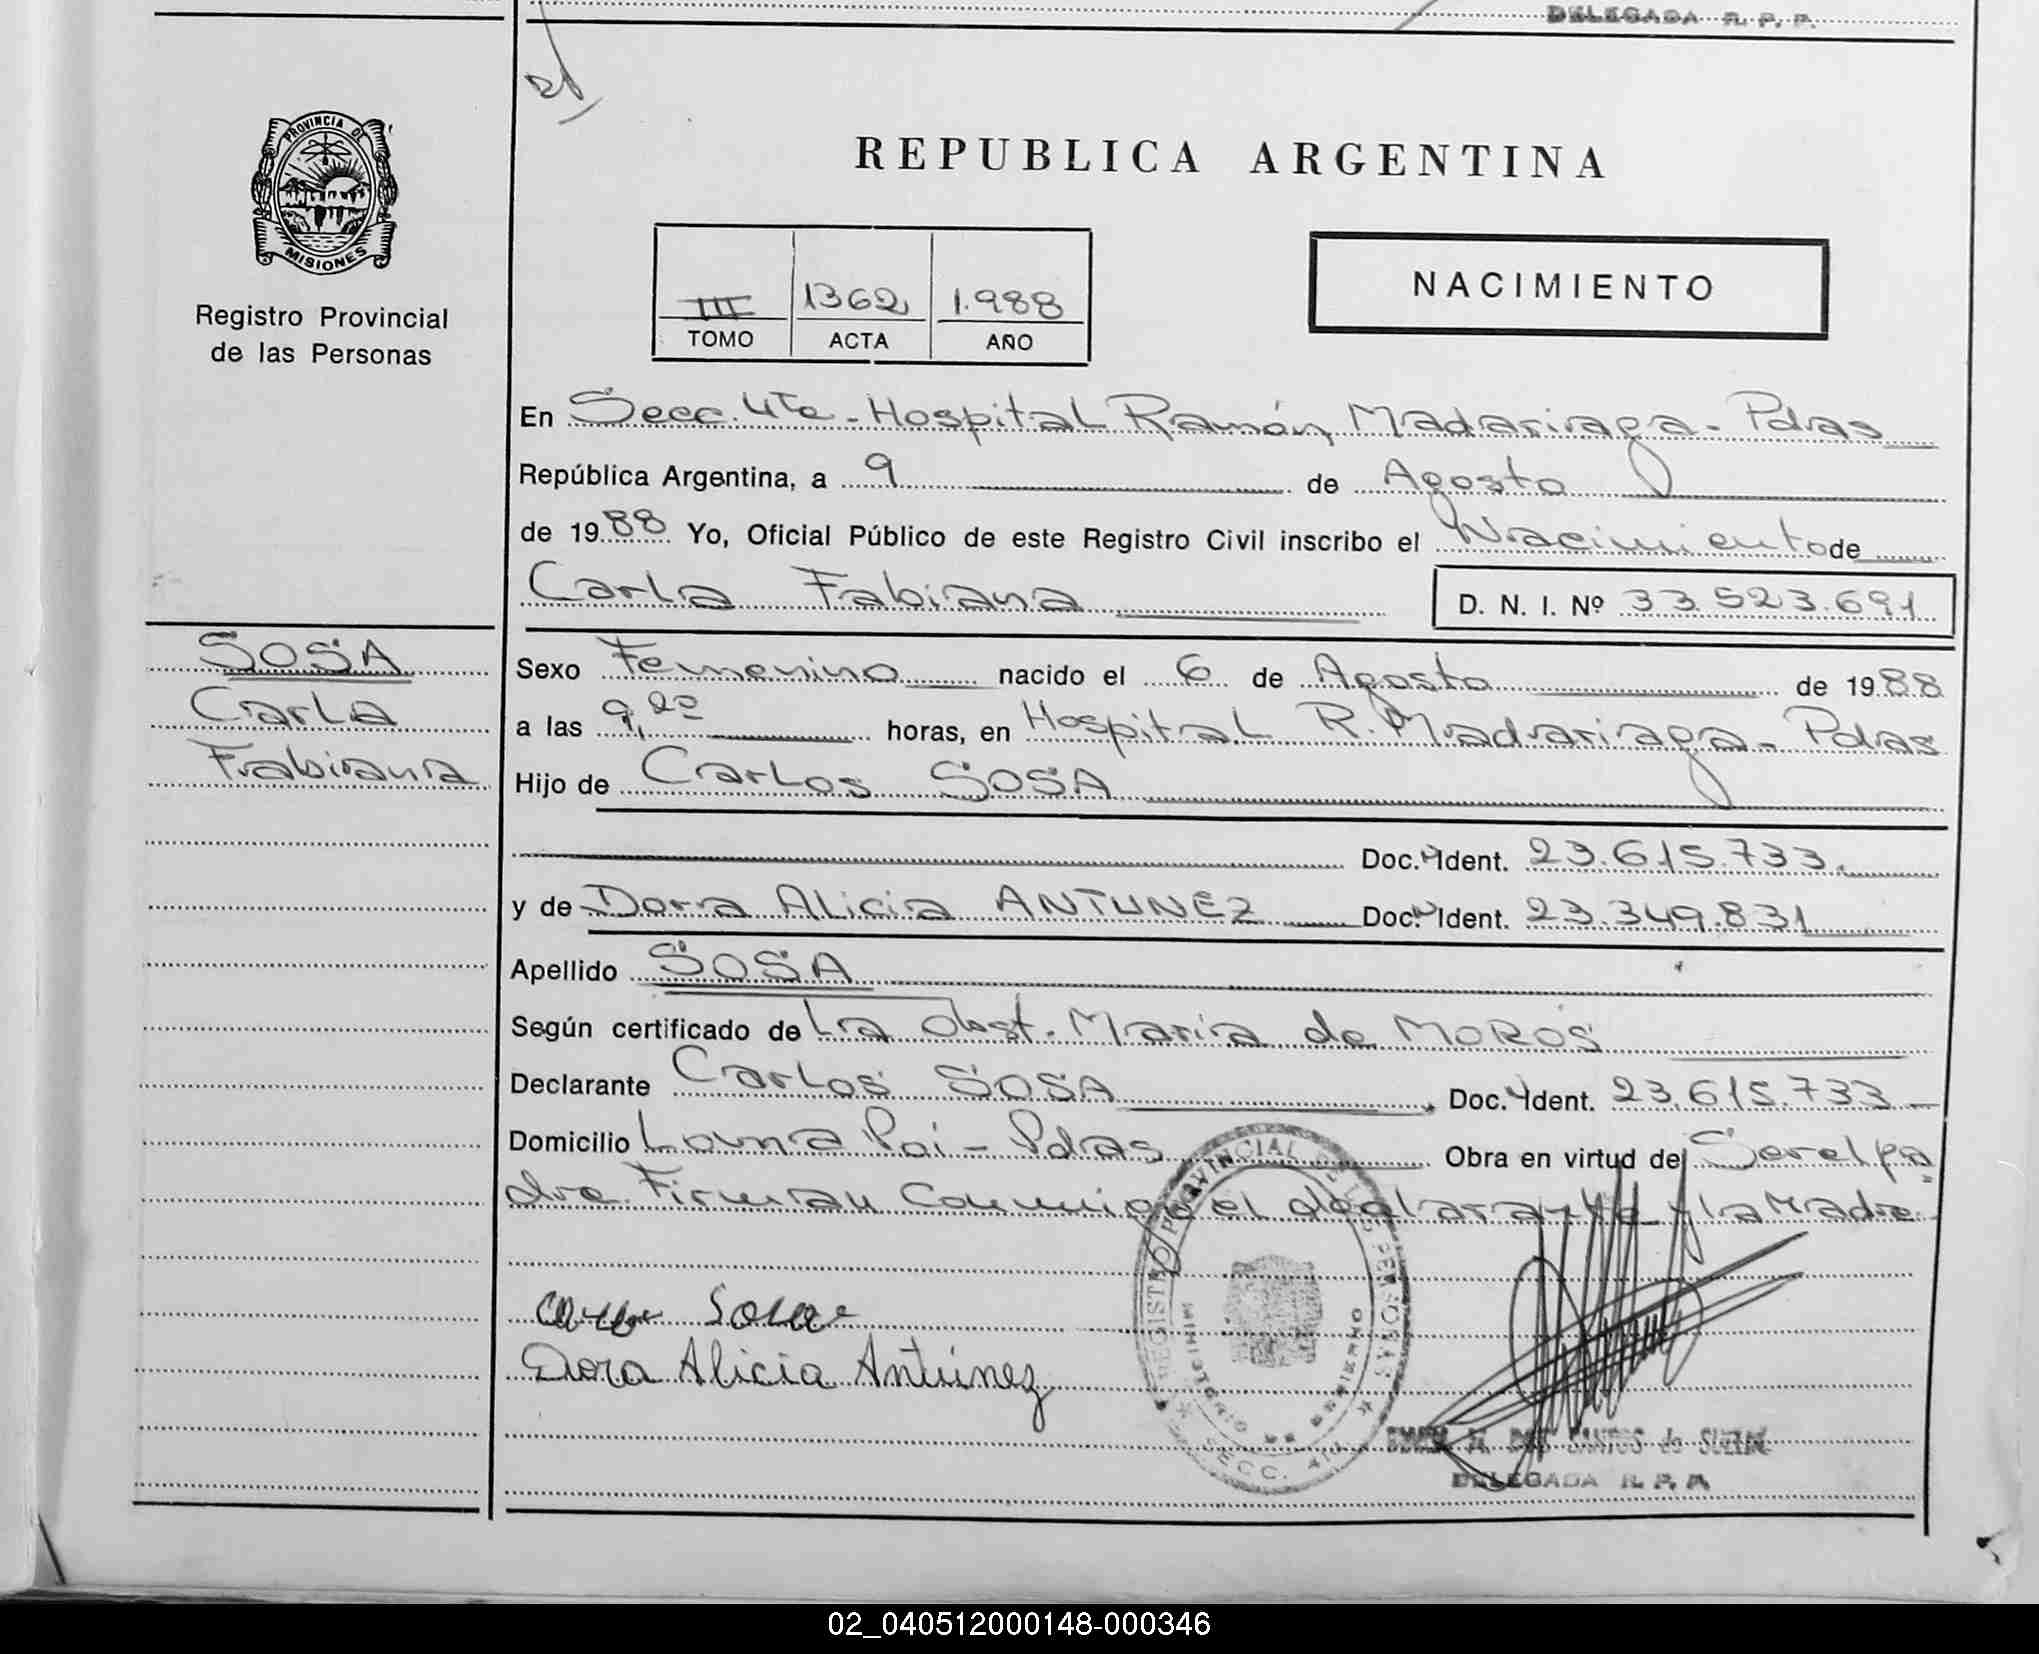 DELEGADA R. P. P.
PROVINCIA DE
MISIONES
Registro Provincial
de las Personas
SOSA
Carla
Fabiana
REPUBLICA ARGENTINA
III 1362 1.988
TOMO ACTA AÑO
NACIMIENTO
En Secc. 4ta - Hospital Ramón Madariaga - Pdas
República Argentina, a 9 de Agosto
de 1988 Yo, Oficial Público de este Registro Civil inscribo el Nacimiento de
Carla Fabiana D. N. I. Nº 33.523.691
Sexo Femenino nacido el 6 de Agosto de 1988
a las 9,20 horas, en Hospital R. Madariaga - Pdas
Hijo de Carlos SOSA
Doc. Ident. 23.615.733.
y de Dora Alicia ANTUNEZ Doc. Ident. 23.349.831
Apellido SOSA
Según certificado de La Obst. Maria de MOROS
Declarante Carlos SOSA Doc. Ident. 23.615.733
Domicilio Loma Poi - Pdas Obra en virtud de Ser el pa
dre Firman Conmigo el declarante y la Madre
Sosa
Dora Alicia Antúnez
REGISTRO PROVINCIAL DE LAS PERSONAS
MINISTERIO DE GOBIERNO
SECC. 4ta
DOS SANTOS de
DELEGADA R. P. P.
02_040512000148-000346